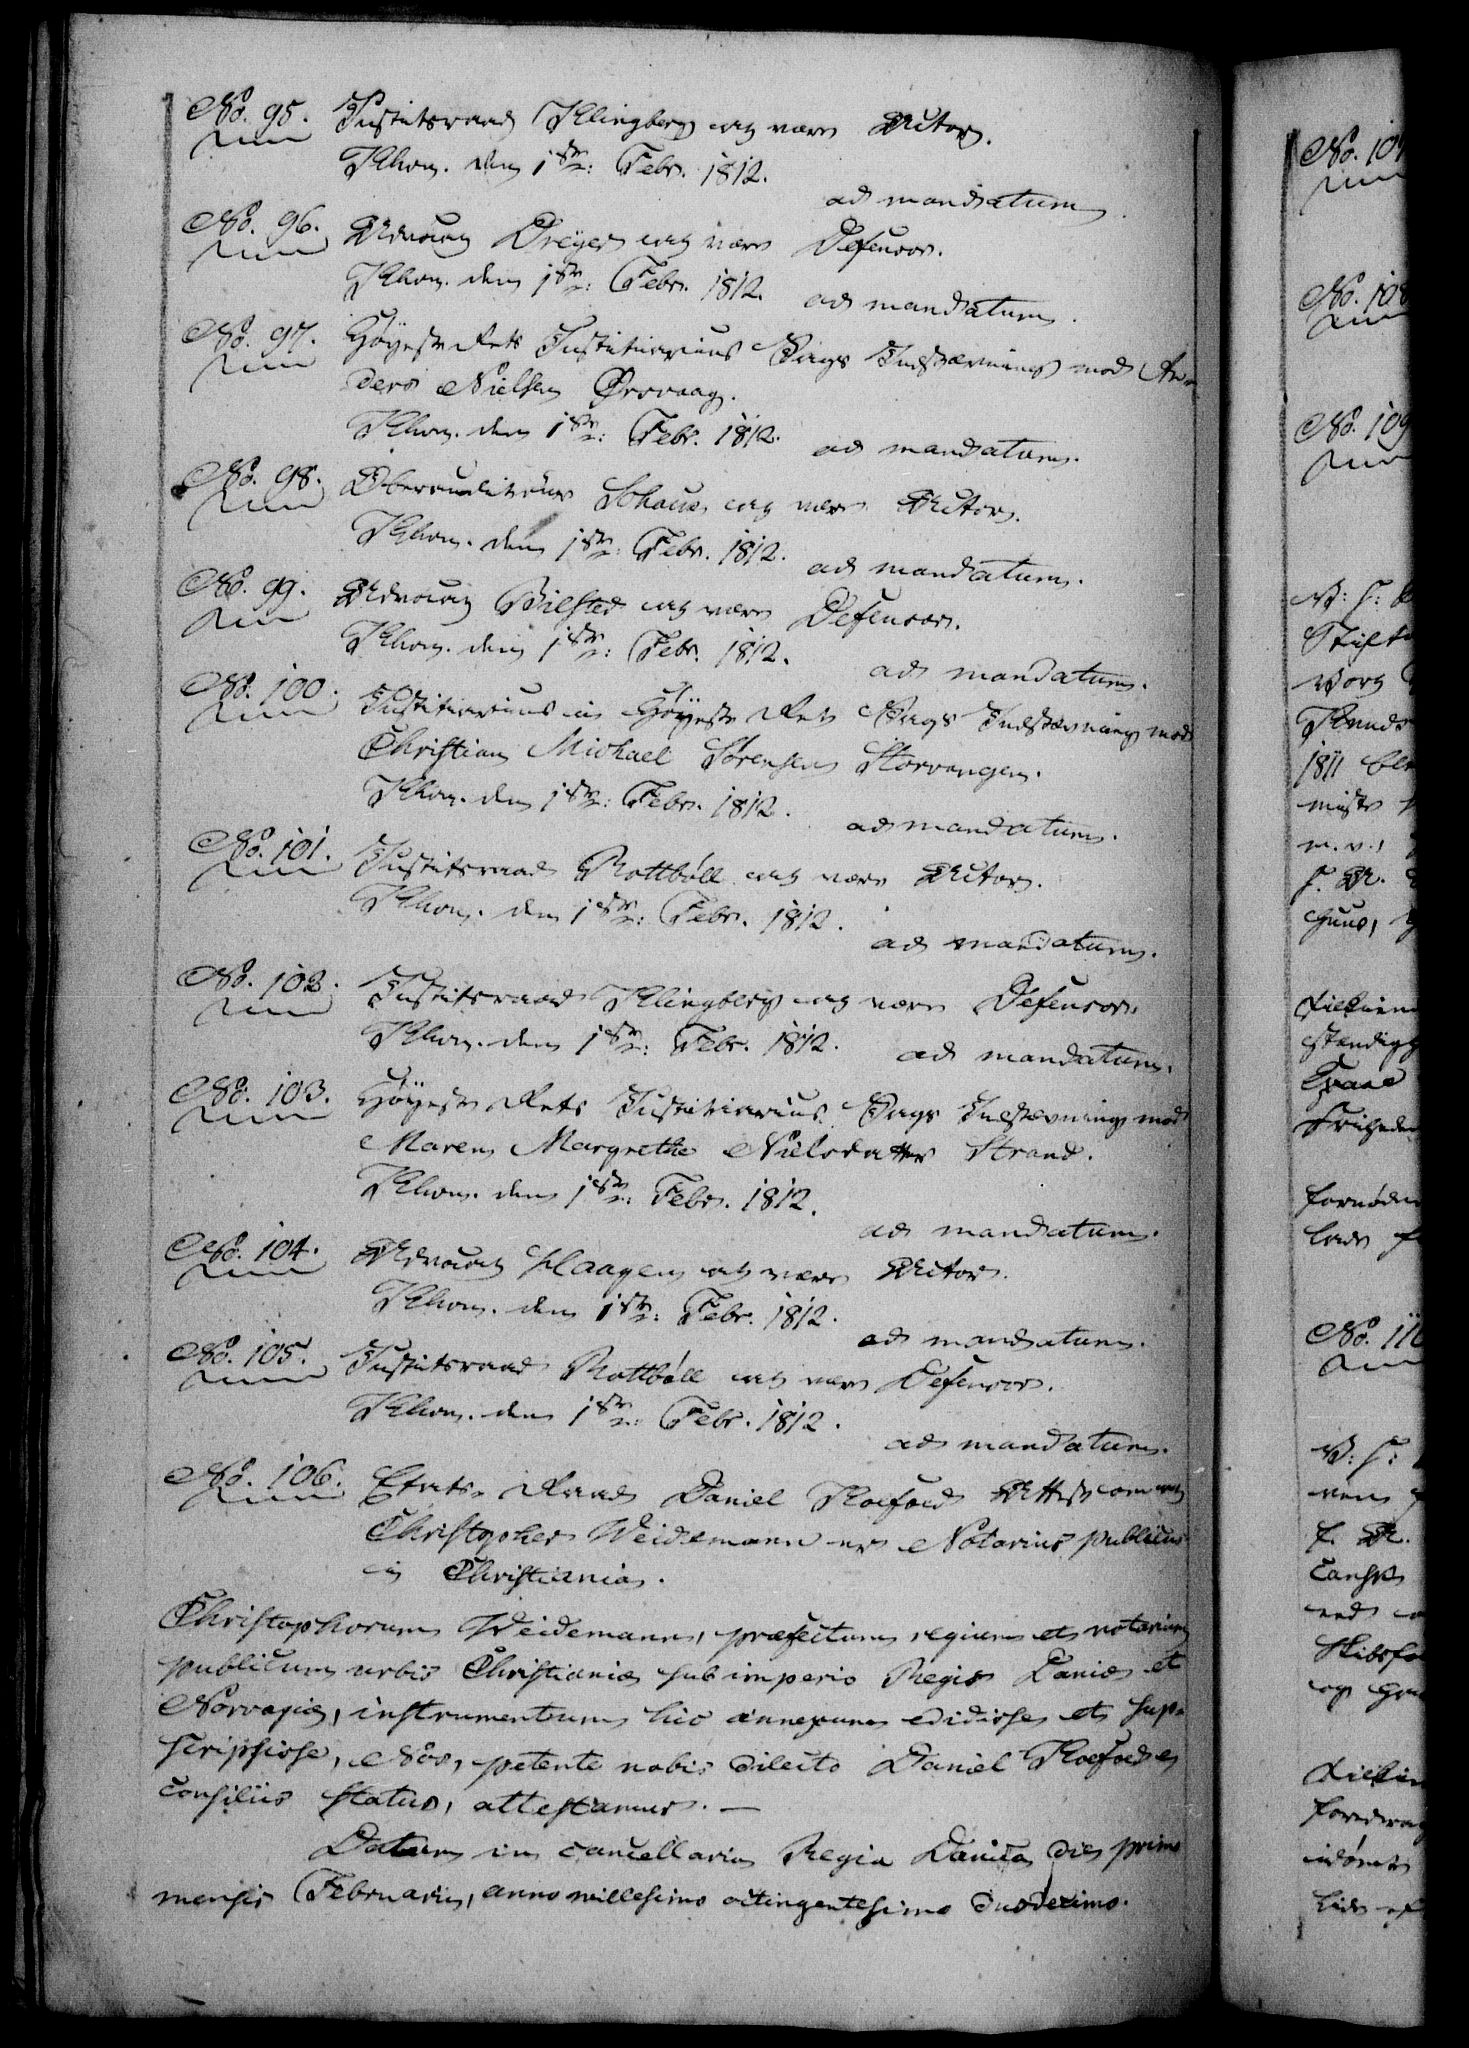 No. 95. Justitsraad Klingberg at være Actor.
Khvn. den 1ste: Febr. 1812.
ad mandatum.
No. 96. Advocat Dreyer at være Defensor.
Khvn. den 1ste: Febr. 1812.
ad mandatum.
No. 97. Høyeste Rets Justitiarius Sags Indstævning mod An-
ders Nielsen
Khvn. den 1ste: Febr. 1812.
ad mandatum.
No. 98. Oberauditeur Schouw at være Actor.
Khvn. den 1ste: Febr. 1812.
ad mandatum.
No. 99. Advocat Bilsted at være Defensor.
Khvn. den 1ste: Febr. 1812.
ad mandatum.
No. 100. Justitiarius in Høyeste Ret Sags Indstævning mod
Christian Michael Sørensen Storvangen.
Khvn. den 1ste: Febr. 1812.
ad mandatum.
No. 101. Justitsraad Rottbøll at være Actor.
Khvn. den 1ste: Febr. 1812.
ad mandatum.
No. 102. Justitsraad Klingberg at være Defensor.
Khvn. den 1ste: Febr. 1812.
ad mandatum.
No. 103. Høyeste Rets Justitiarius Sags Indstævning mod
Maren Margrethe Nielsdatter Strand.
Khvn. den 1ste: Febr. 1812.
ad mandatum.
No. 104. Advocat Haagen at være Actor.
Khvn. den 1ste: Febr. 1812.
ad mandatum.
No. 105. Justitsraad Rottbøll at være Defensor.
Khvn. den 1ste: Febr. 1812.
ad mandatum.
No. 106. Etats-Raad Daniel Koefoed Attest om at
Christopher Weidemann er Notarius publicus
in Christiania.
Christophorum Weidemann, præfectum regium et notarium
publicum urbis Christianiæ sub imperio Regis Daniæ et
Norvagiæ, instrumentum hic annexum edidisse et sup-
scripsisse, Nos, petente nobis dilecto Daniel Koefoed a
consiliis status, attestamur. —
Datum in cancellaria Regia Danica die primo
mensis Februarii, anno millesimo octingentesimo duodecimo.
No. 10
No. 108
No. 109
Stift
1811
m. v.,
No. 110